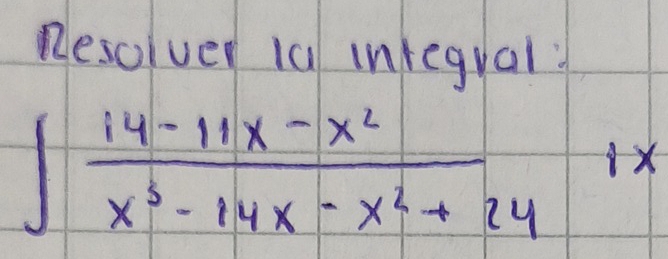 Resolver la integral:
∫ (14 - 11x - x²) / (x³ - 14x - x² + 24) dx